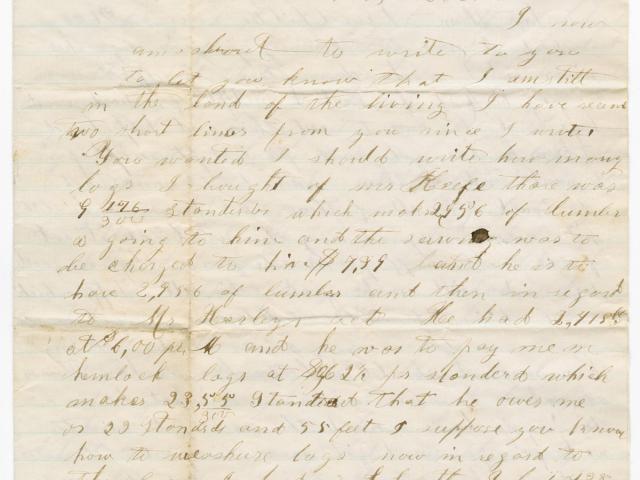 I now
am about to write to you
to let you know that I am still
in the land of the living I have recd
two short lines from you since I wrote
You wanted I should write how many
logs I bought of mr Keefe there was
9 196/300 Standerds which makes 2956 of lumber
a going to him and the sawing was to
be charged to him $7,39 and he is to
have 2,956 of lumber and then in regard
to Mr act He had
at $6,00 per M and he was to pay me in
hemlock logs at pr standerd which
makes 23, 55/300 Standerd that he owes me
or 23 Standerds and 55 feet I suppose you know
how to measure logs now in regard to